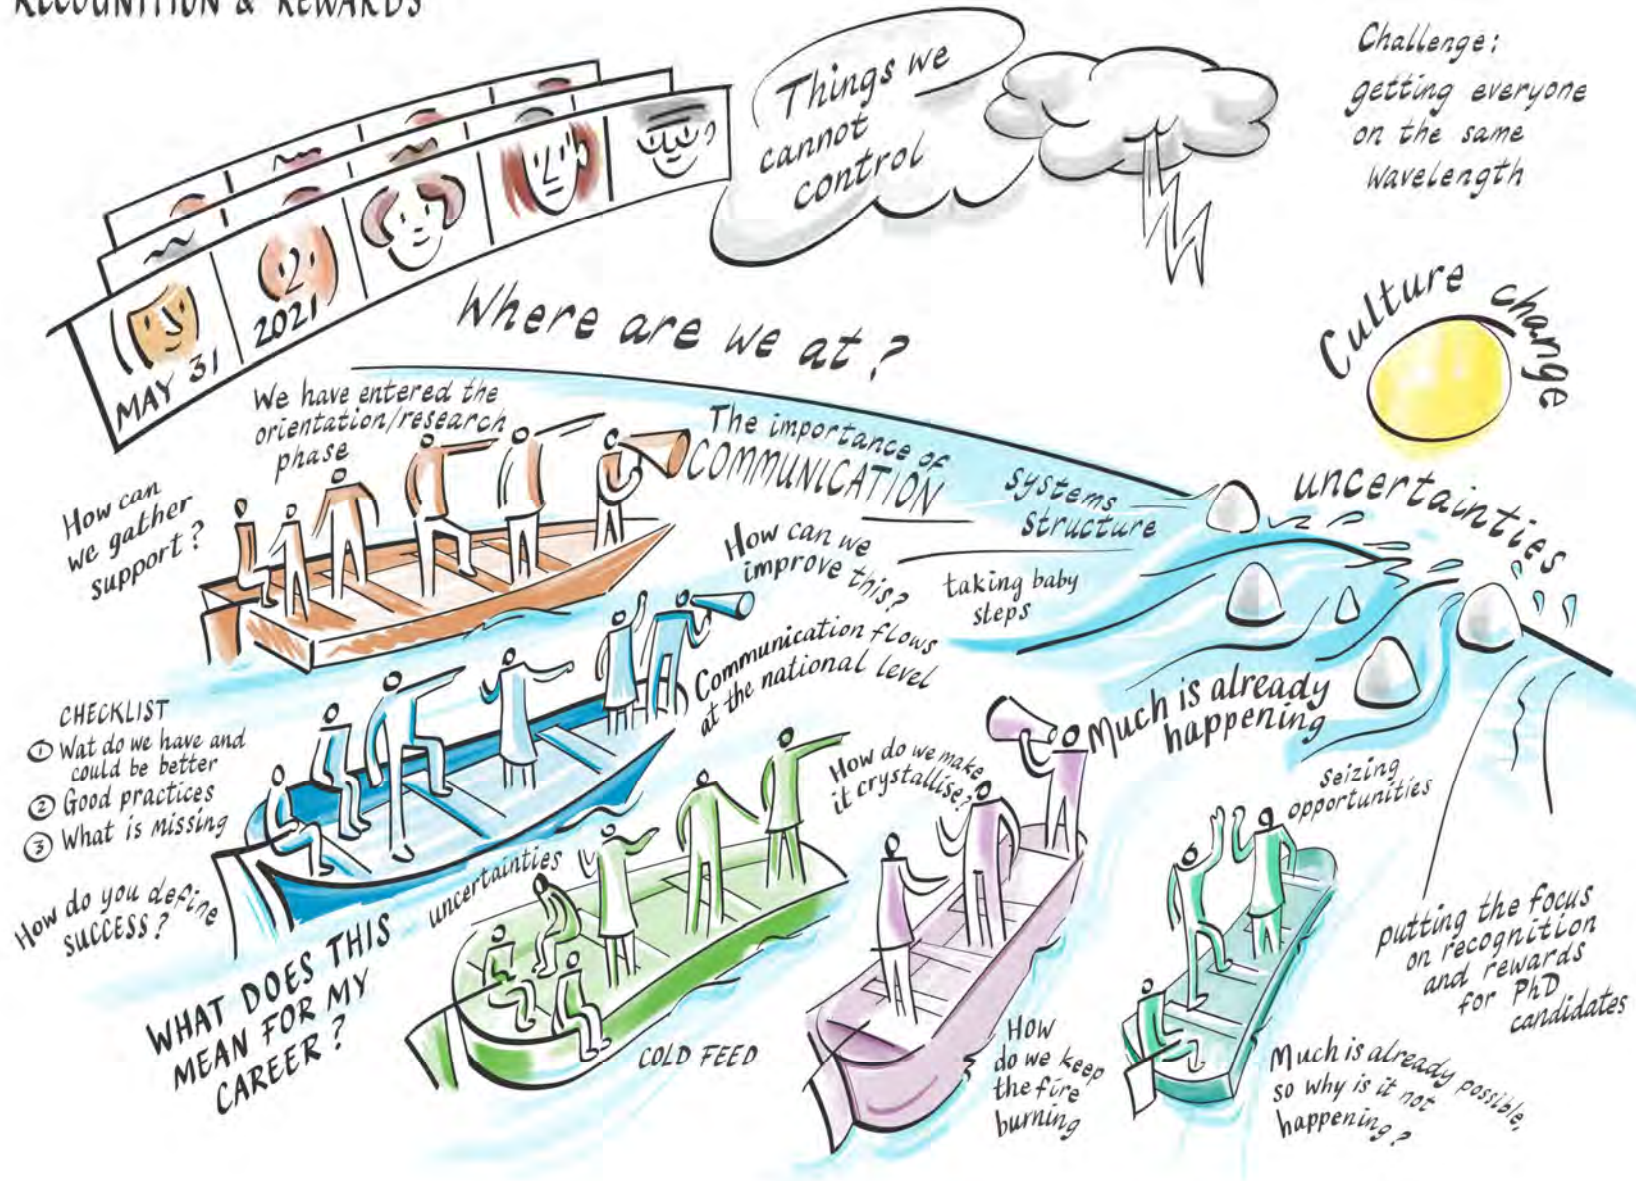 RECOGNITION & REWARDS
Things we
cannot
control
Challenge:
getting everyone
on the same
wavelength
MAY 31
2021
Where are we at?
Culture change
We have entered the
orientation/research
phase
The importance of
COMMUNICATION
systems
structure
uncertainties
How can
we gather
support?
How can we
improve this?
taking baby
steps
Communication flows
at the national level
Much is already
happening
CHECKLIST
① Wat do we have and
could be better
② Good practices
③ What is missing
How do we make
it crystallise?
seizing
opportunities
How do you define
SUCCESS?
uncertainties
WHAT DOES THIS
MEAN FOR MY
CAREER?
COLD FEED
How
do we keep
the fire
burning
putting the focus
on recognition
and rewards
for PhD
candidates
Much is already possible,
so why is it not
happening?